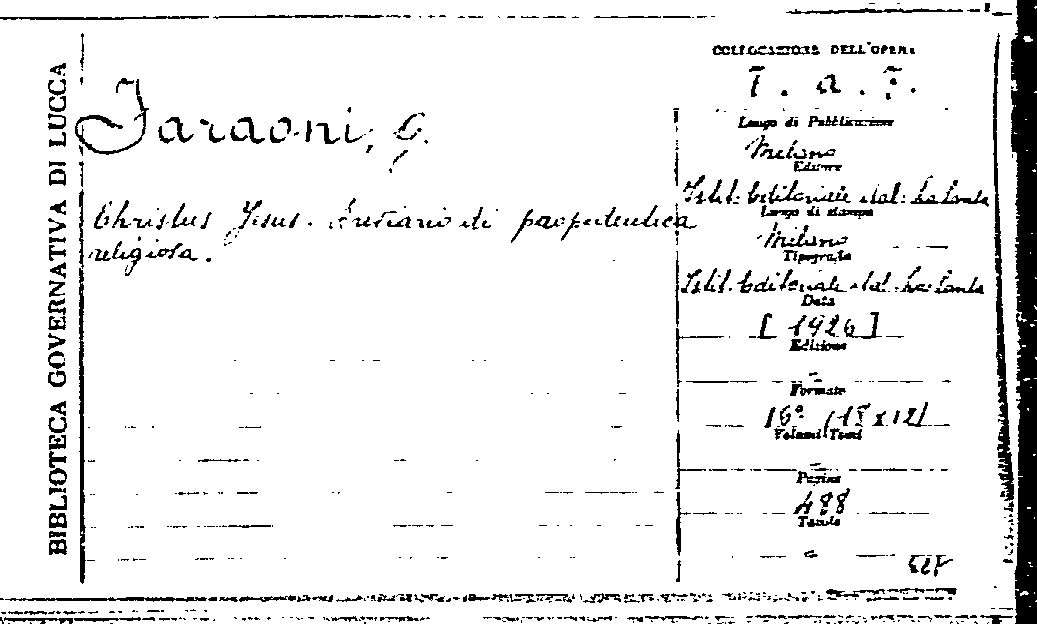 BIBLIOTECA GOVERNATIVA DI LUCCA
Faraoni, G.
Christus Jesus. Breviario di propedeutica
religiosa.
COLLOCAZIONE DELL'OPERA
T. a. F.
Luogo di Pubblicazione
Milano
Editore
Istit. Editoriale
Luogo di stampa
Milano
Tipografia
Istit. Editoriale
Data
[1926]
Edizione
-
Formato
16° (18 x 12)
Volumi Tomi
-
Pagine
488
Tavole
-